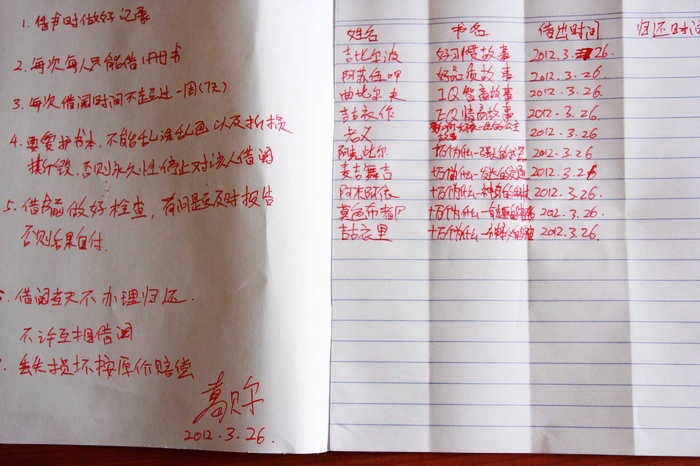 1. 借书时做好记录
2. 每次每人只能借1册书
3. 每次借阅时间不超过一周(7天)
4. 要爱护书本,不能乱涂乱画以及折损
否则永久性停止对该人借阅
5. 借前做好检查,有问题及时报告
否则后果自付.
借阅当天不办理归还.
不许互相借阅
丢失损坏按原价赔偿
2012.3.26.
姓名 书名 借出时间 归还时间
吉比尔波 好习惯故事 2012.3.26.
阿苏伍呷 好品质故事 2012.3.26.
曲比尔夫 IQ智商故事 2012.3.26.
吉古衣作 EQ情商故事 2012.3.26.
2012.3.26
阿克比尔 十万个为什么 2012.3.26.
麦吉舞吉 十万个为什么 2012.3.26
阿木阿依 十万个为什么 2012.3.26.
莫色布都尸 十万个为什么 2012.3.26.
吉古衣里 十万个为什么 2012.3.26.